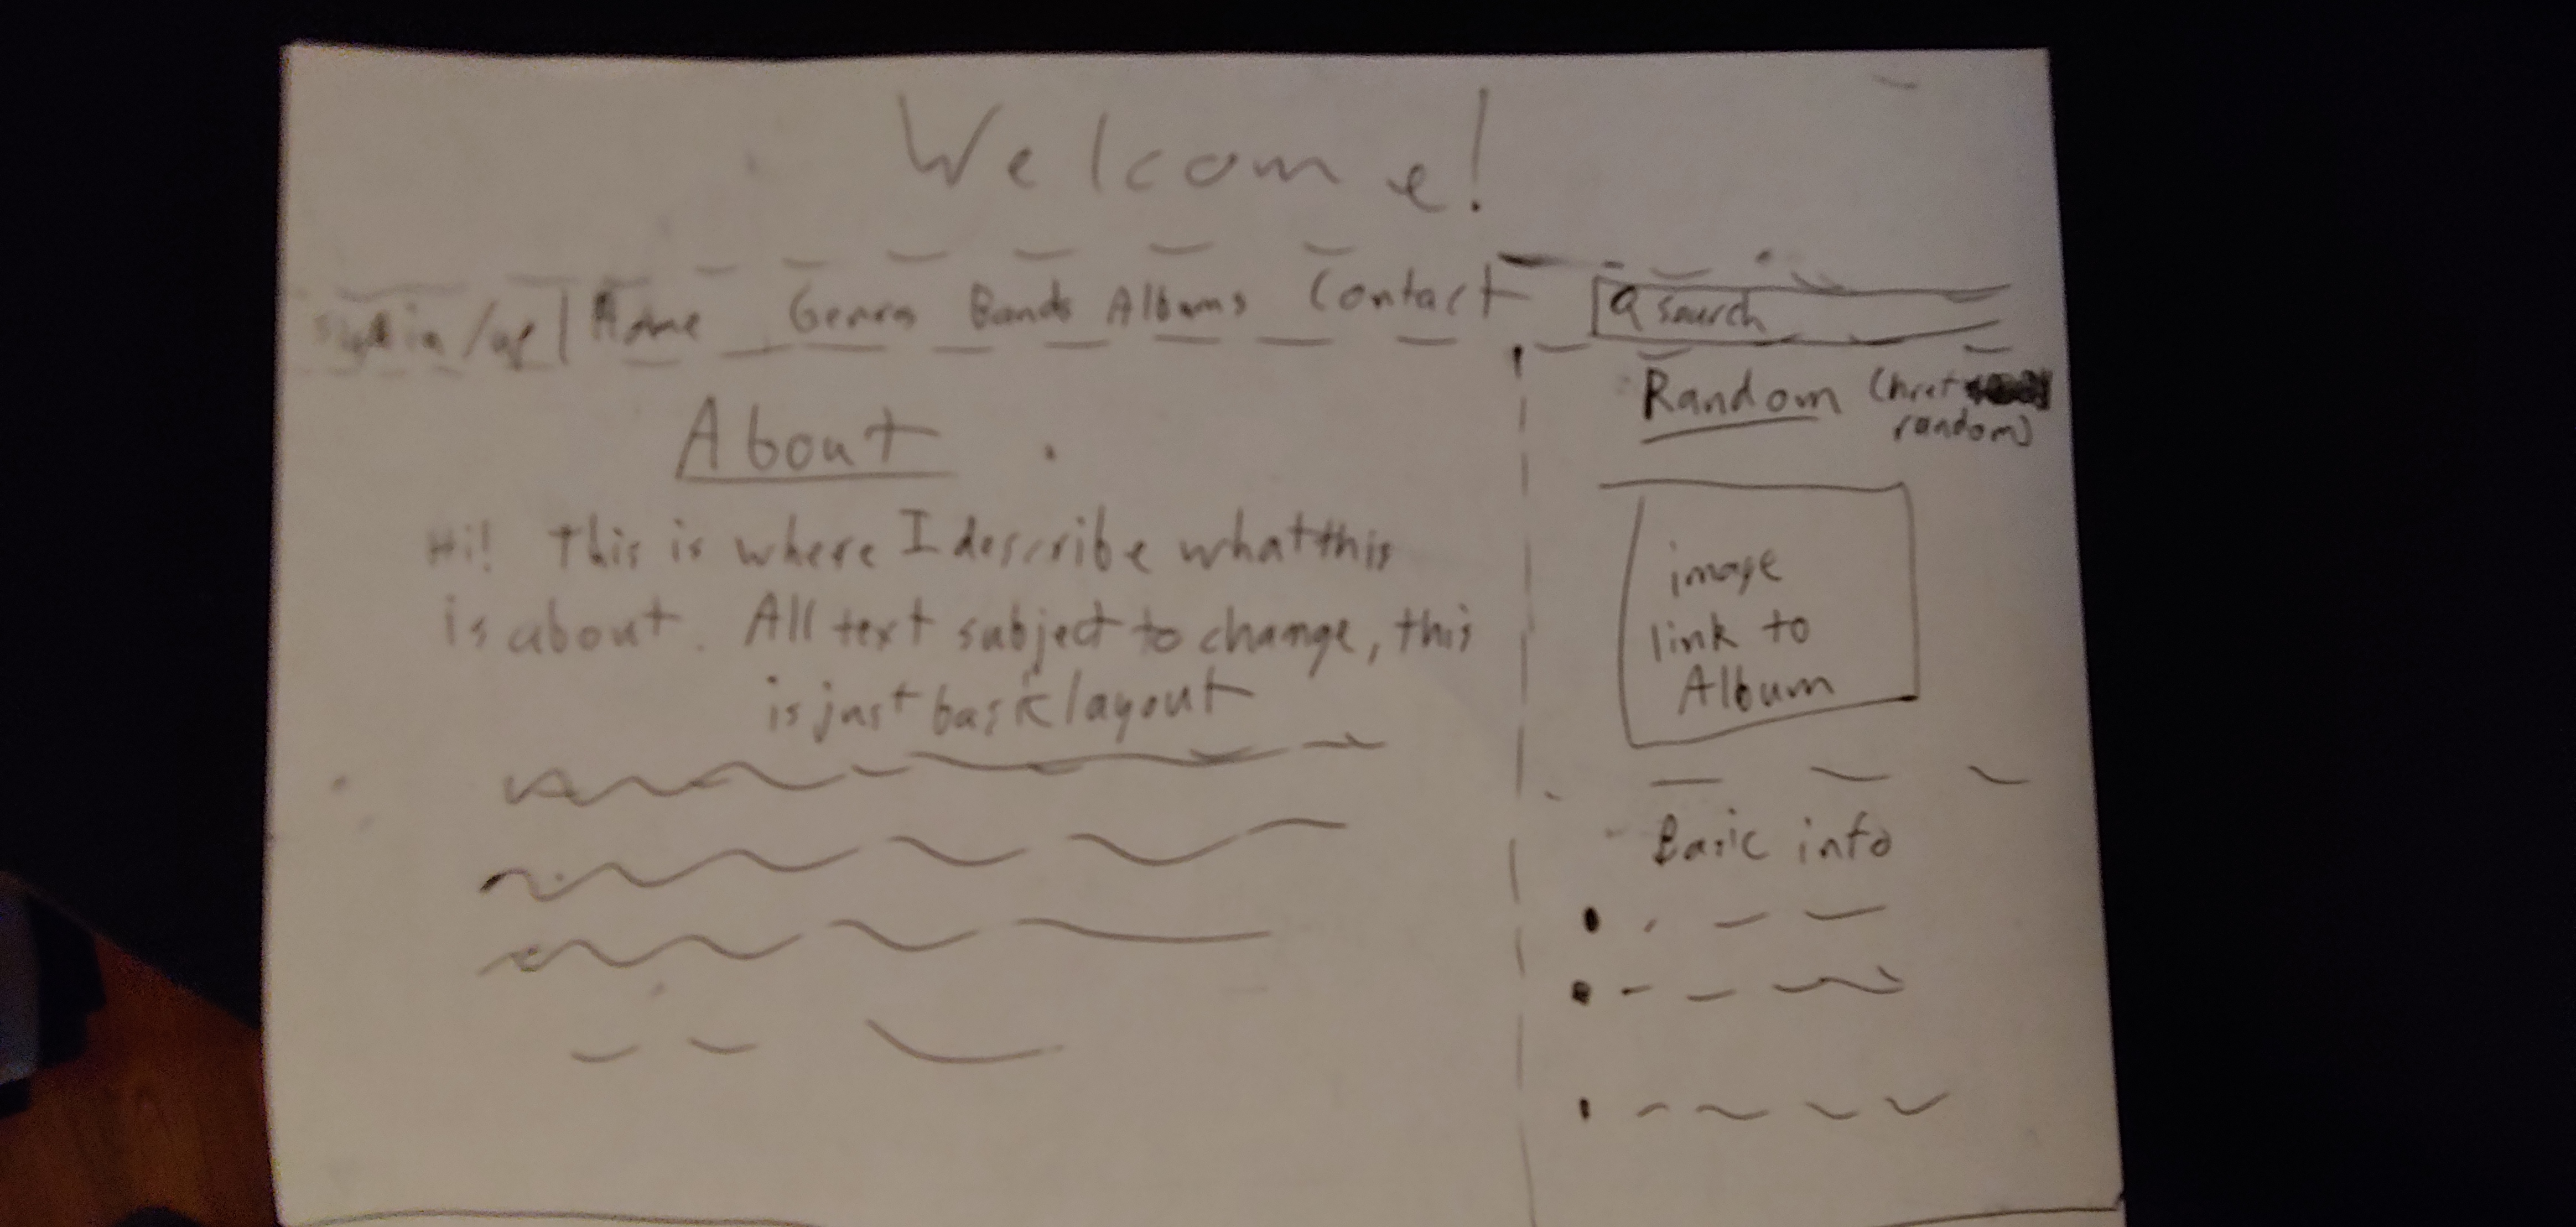 Welcome!
sign in/up | Home Genres Bands Albums Contact
Search
About
Hi! This is where I describe what this
is about. All text subject to change, this
is just basic layout
Random (href
random)
image
link to
Album
Basic info